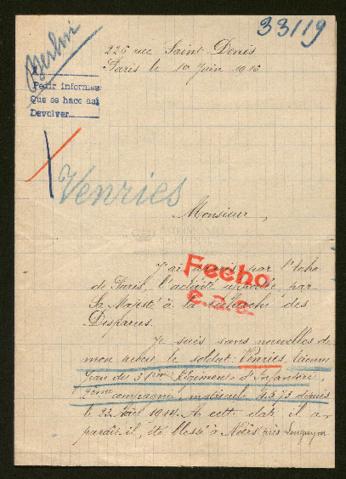 33119
Berlin
225 rue Saint-Denis
Paris le 1er Juin 1916
Pedir informes
Que se hace asi
Devolver
Venries
Monsieur,
J'ai appris par l'Echo
de Paris, l'activité
Sa Majesté à la recherche des
Disparus.
Fecho
Je suis sans nouvelles de
mon neveu le soldat Venries
du 31eme Régiment d'Infanterie,
compagnie, matricule depuis
le 22 Août 1914. A cette date il a
paraît-il, été blessé à près Longuyon